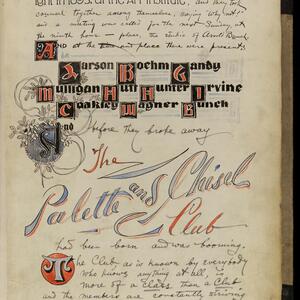 in 1895, at the Art Institute, and they took
counsel together among themselves, saying why not
air a meeting was called for the next Sunday, at
the ninth hour – place, the studio of
AND at the hour and place there were present:
Larson Boehm Gandy
Mulligan Hutt Hunter Irvine
Coakley Wagner Bunch
And before they broke away
The
Palette and Chisel
Club
had been born and was booming.
The Club, as is known by everybody
who knows anything at all, is
more of a class than a Club
and the members are constantly striving